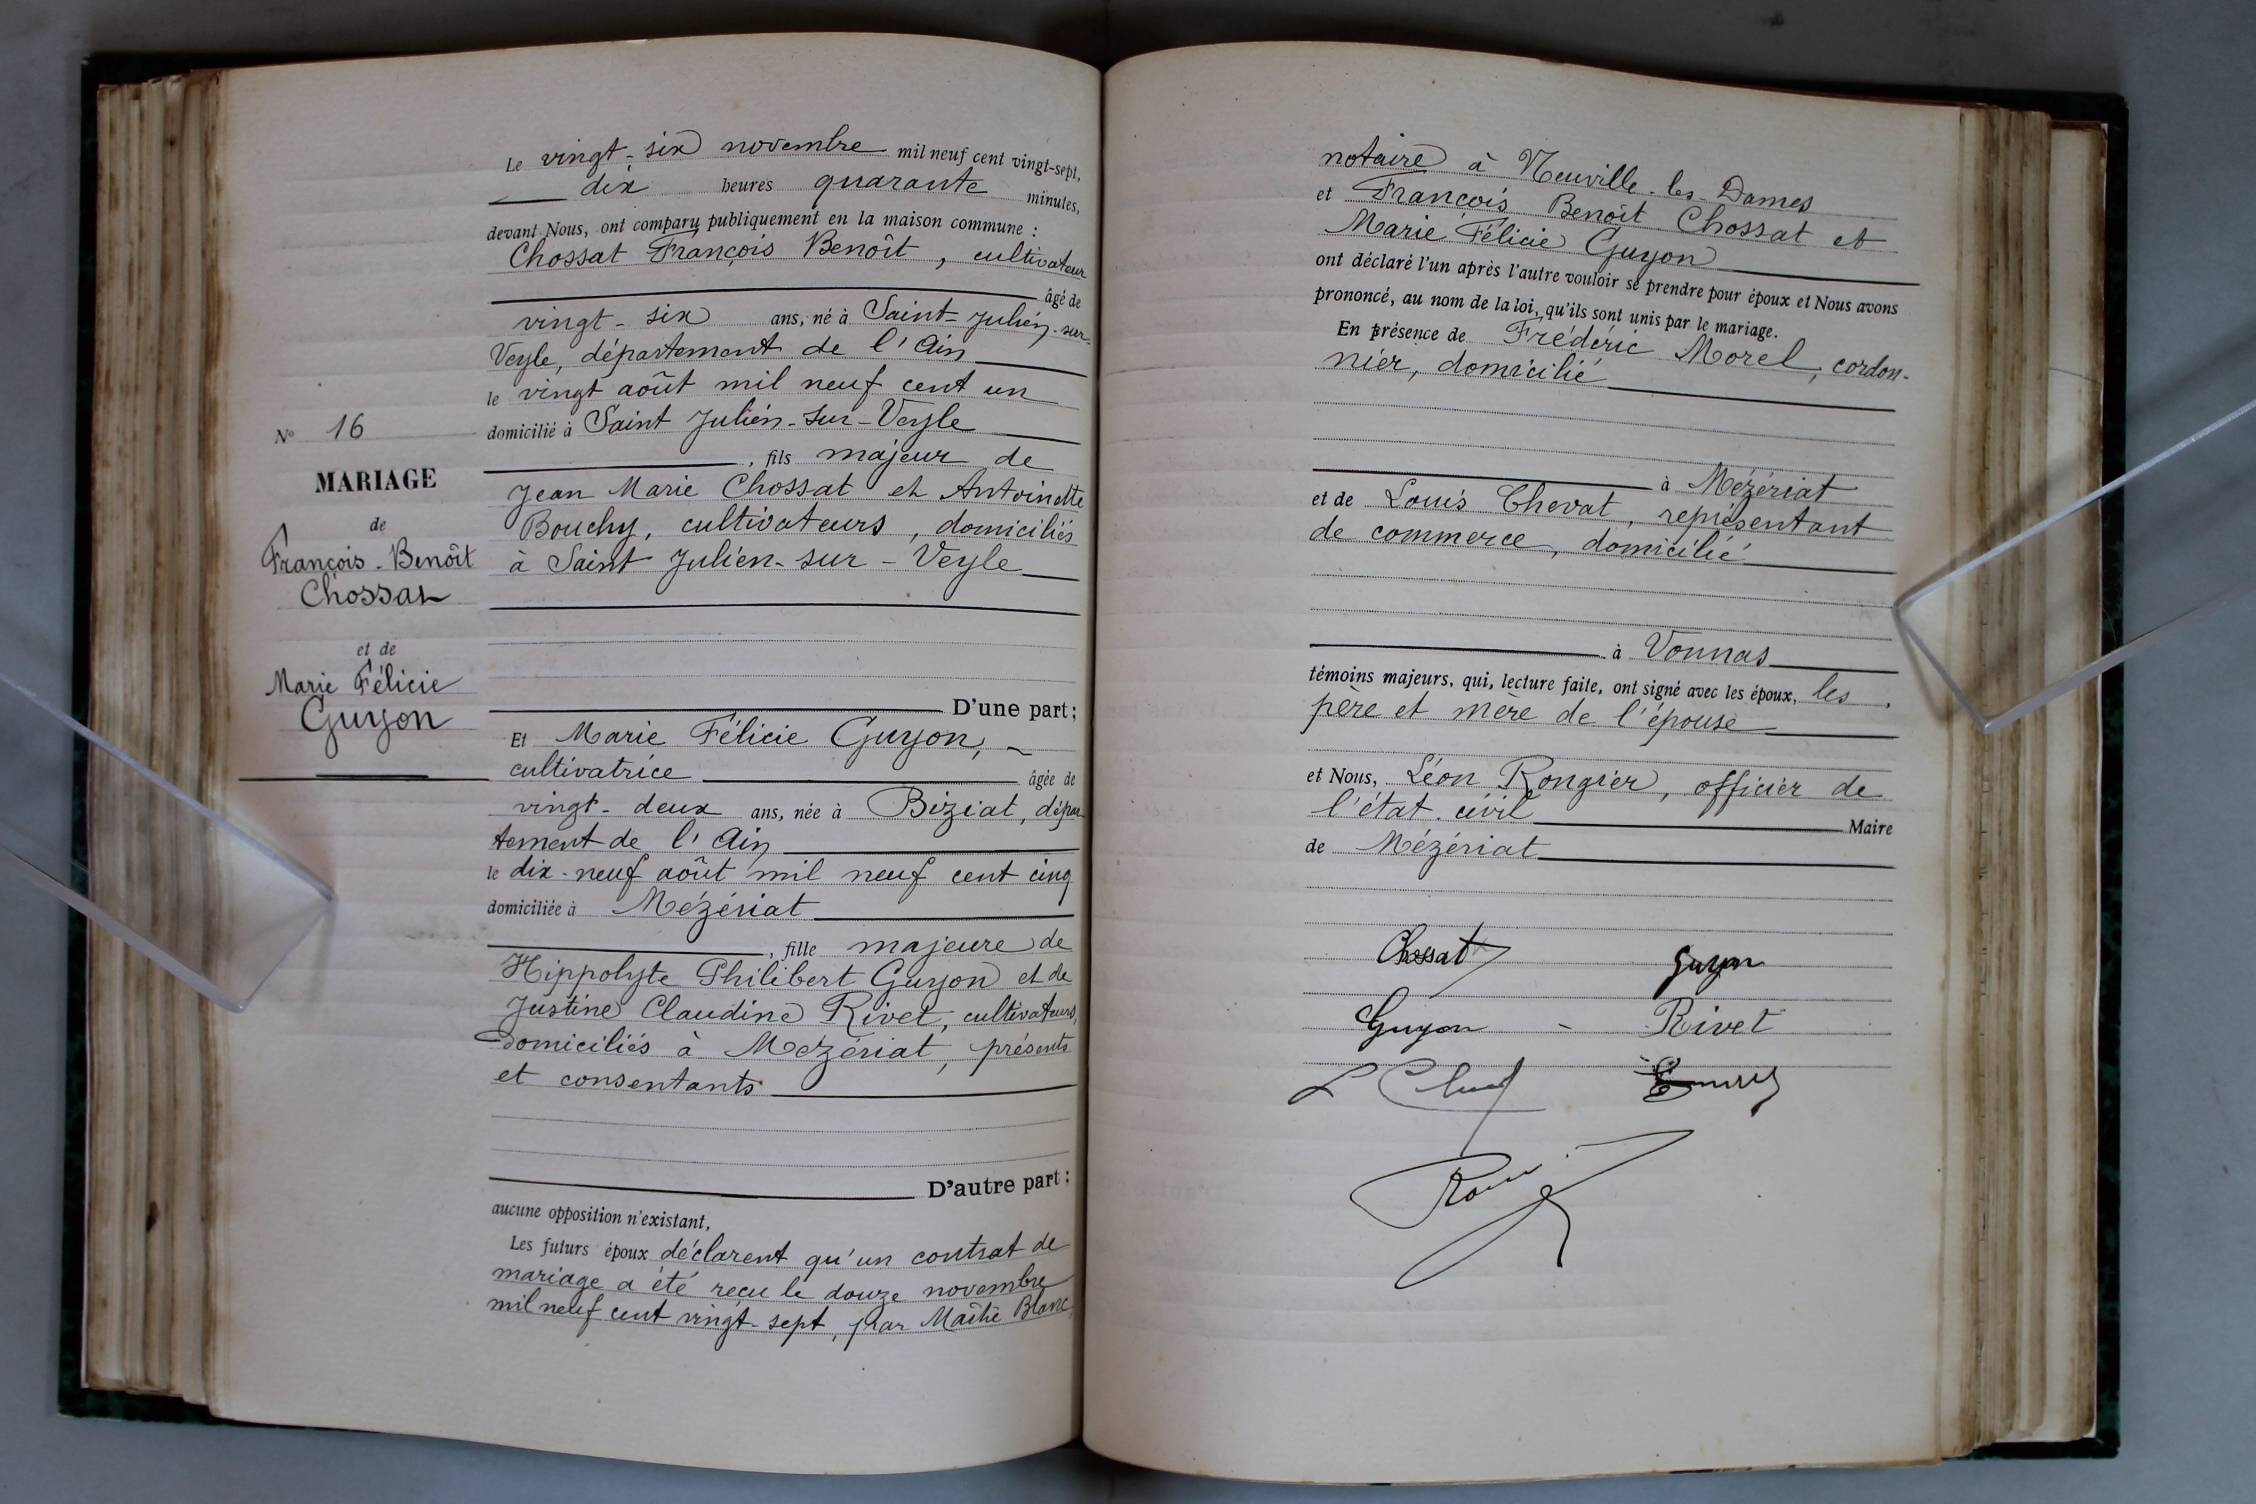 Le vingt-six novembre mil neuf cent vingt-sept,
dix heures quarante minutes,
devant Nous, ont comparu publiquement en la maison commune :
Chossat François Benoît, cultivateur
âgé de
vingt-six ans, né à Saint-Julien-sur-
Veyle, département de l'Ain
le vingt août mil neuf cent un
domicilié à Saint Julien-sur-Veyle
, fils majeur de
Jean Marie Chossat et Antoinette
Bouchy, cultivateurs, domiciliés
à Saint Julien-sur-Veyle
N° 16
MARIAGE
de
François-Benoît
Chossat
et de
Marie Félicie
Guyon
D'une part ;
Et Marie Félicie Guyon,
cultivatrice âgée de
vingt-deux ans, née à Biziat, dépar-
tement de l'Ain
le dix-neuf août mil neuf cent cinq
domiciliée à Mézériat
, fille majeure de
Hippolyte Philibert Guyon et de
Justine Claudine Rivet, cultivateurs,
domiciliés à Mézériat, présents
et consentants
D'autre part ;
aucune opposition n'existant,
Les futurs époux déclarent qu'un contrat de
mariage a été reçu le douze novembre
mil neuf cent vingt-sept, par Maître Blanc,
notaire à Neuville-les-Dames
et François Benoît Chossat et
Marie Félicie Guyon
ont déclaré l'un après l'autre vouloir se prendre pour époux et Nous avons
prononcé, au nom de la loi, qu'ils sont unis par le mariage.
En présence de Frédéric Morel, cordon-
nier, domicilié
à Mézériat
et de Louis Chevat, représentant
de commerce, domicilié
à Vonnas
témoins majeurs, qui, lecture faite, ont signé avec les époux, les
père et mère de l'épouse
et Nous, Léon Rongier, officier de
l'état-civil Maire
de Mézériat
Chossat Guyon
Guyon - Rivet